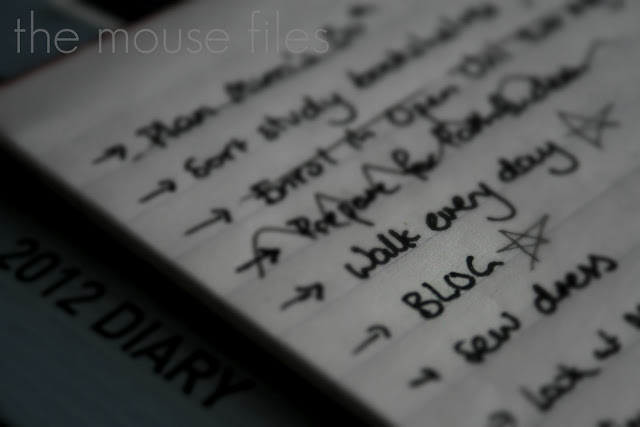 the mouse files
→ Plan
→ Sort study
→ Enrol in Open Uni
→ Prepare for
→ Walk every day ☆
→ BLOG ☆
→ Sew dress
→ Look at
2012 DIARY